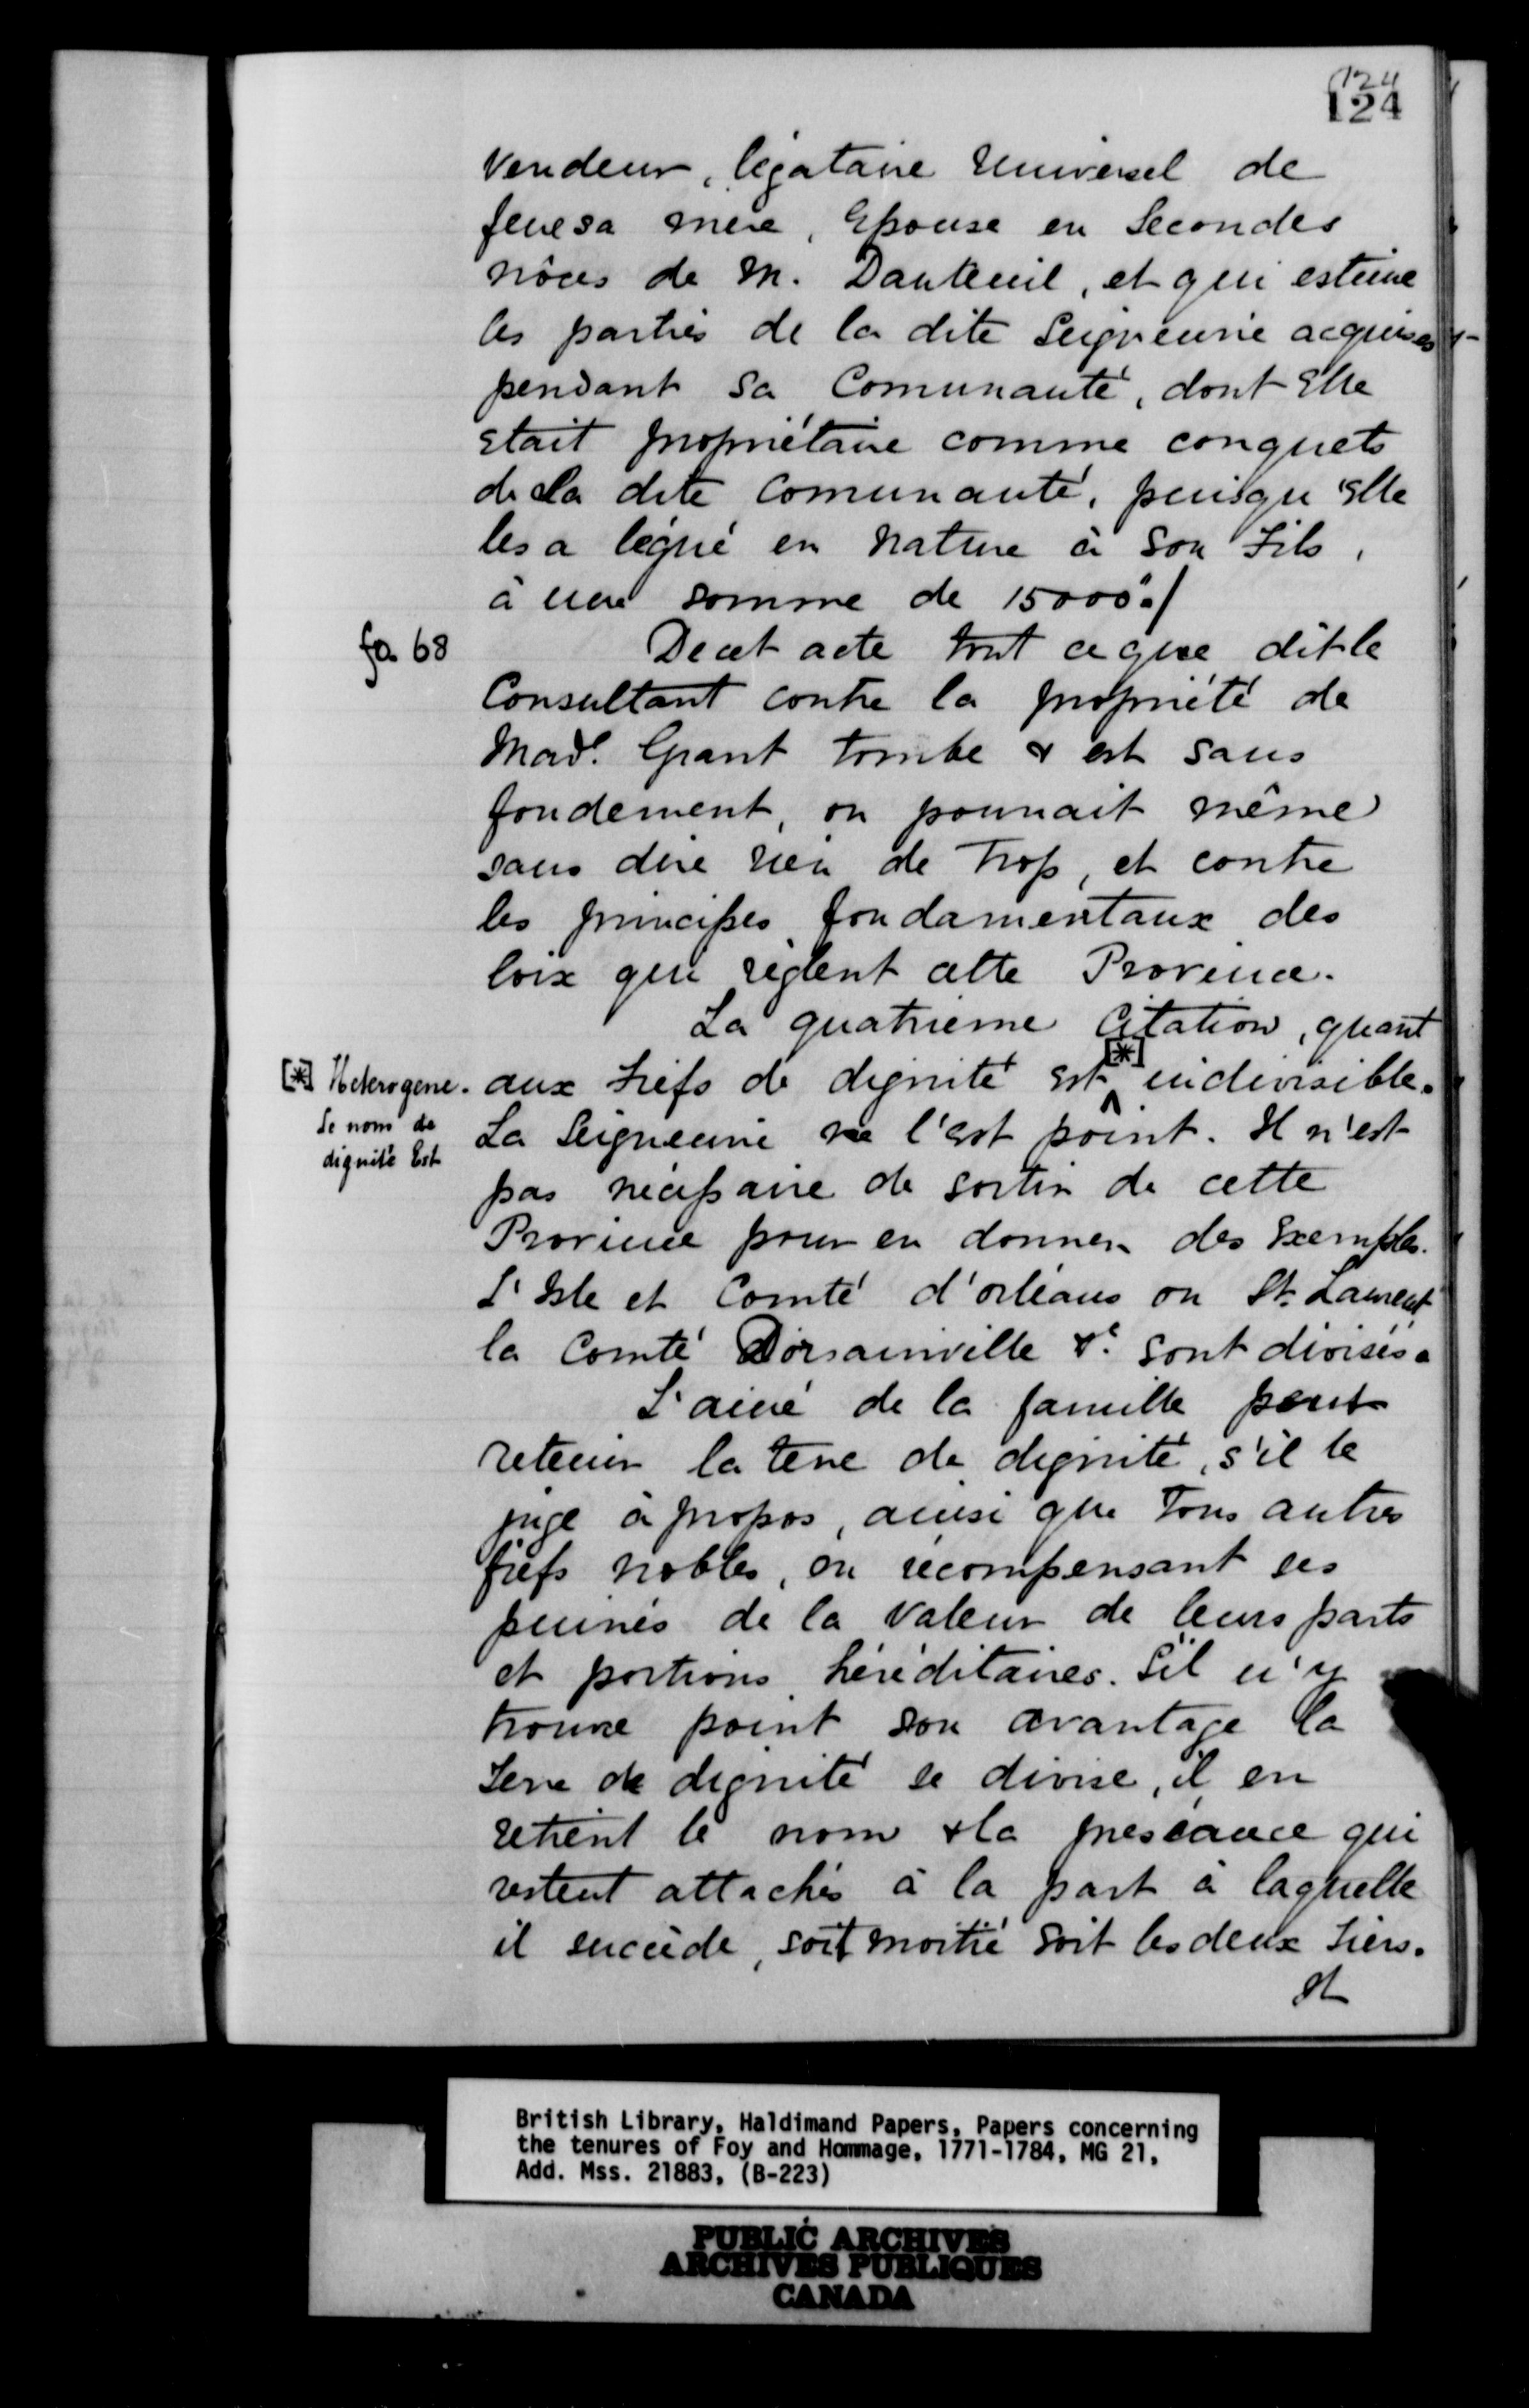 124
124
Vendeur, légataire Universel de
feue sa mère, Epouse en Secondes
nôces de M. Danteuil, et qui estime
les parties de la dite Seigneurie acquises
pendant sa Comunauté, dont Elle
était propriétaire comme conquets
de la dite Comunauté, puisqu'Elle
les a légué en Nature à Son Fils,
à une somme de 15000"./
fo. 68
De cet acte tout ce que dit le
Consultant contre la propriété de
Made. Grant tombe & est sans
fondement, on pourrait même
sans dire rien de Trop, et contre
les principes fondamentaux des
loix qui règlent cette Province.
La quatrième Citation, quant
[*]
aux Fiefs de dignité est indivisible.
[*] Heterogene.
Le nom de
dignité Est
La Seigneurie ne l'est point. Il n'est
pas nécessaire de sortir de cette
Province pour en donner des Exemples.
L'Isle et Comté d'orléans ou St. Laurent
la Comté Dorsainville &c. sont divisés.
L'ainé de la famille peut
retenir la terre de dignité, s'il le
juge à propos, ainsi que Tous autres
fiefs nobles, en récompensant ses
puinés de la Valeur de leurs parts
et portions héréditaires. S'il n'y
trouve point son avantage la
Terre de dignité se divise, il en
retient le nom & la preséance qui
restent attachés à la part à laquelle
il succède, soit moitié soit les deux Tiers.
et
British Library, Haldimand Papers, Papers concerning
the tenures of Foy and Hommage, 1771-1784, MG 21,
Add. Mss. 21883, (B-223)
PUBLIC ARCHIVES
ARCHIVES PUBLIQUES
CANADA